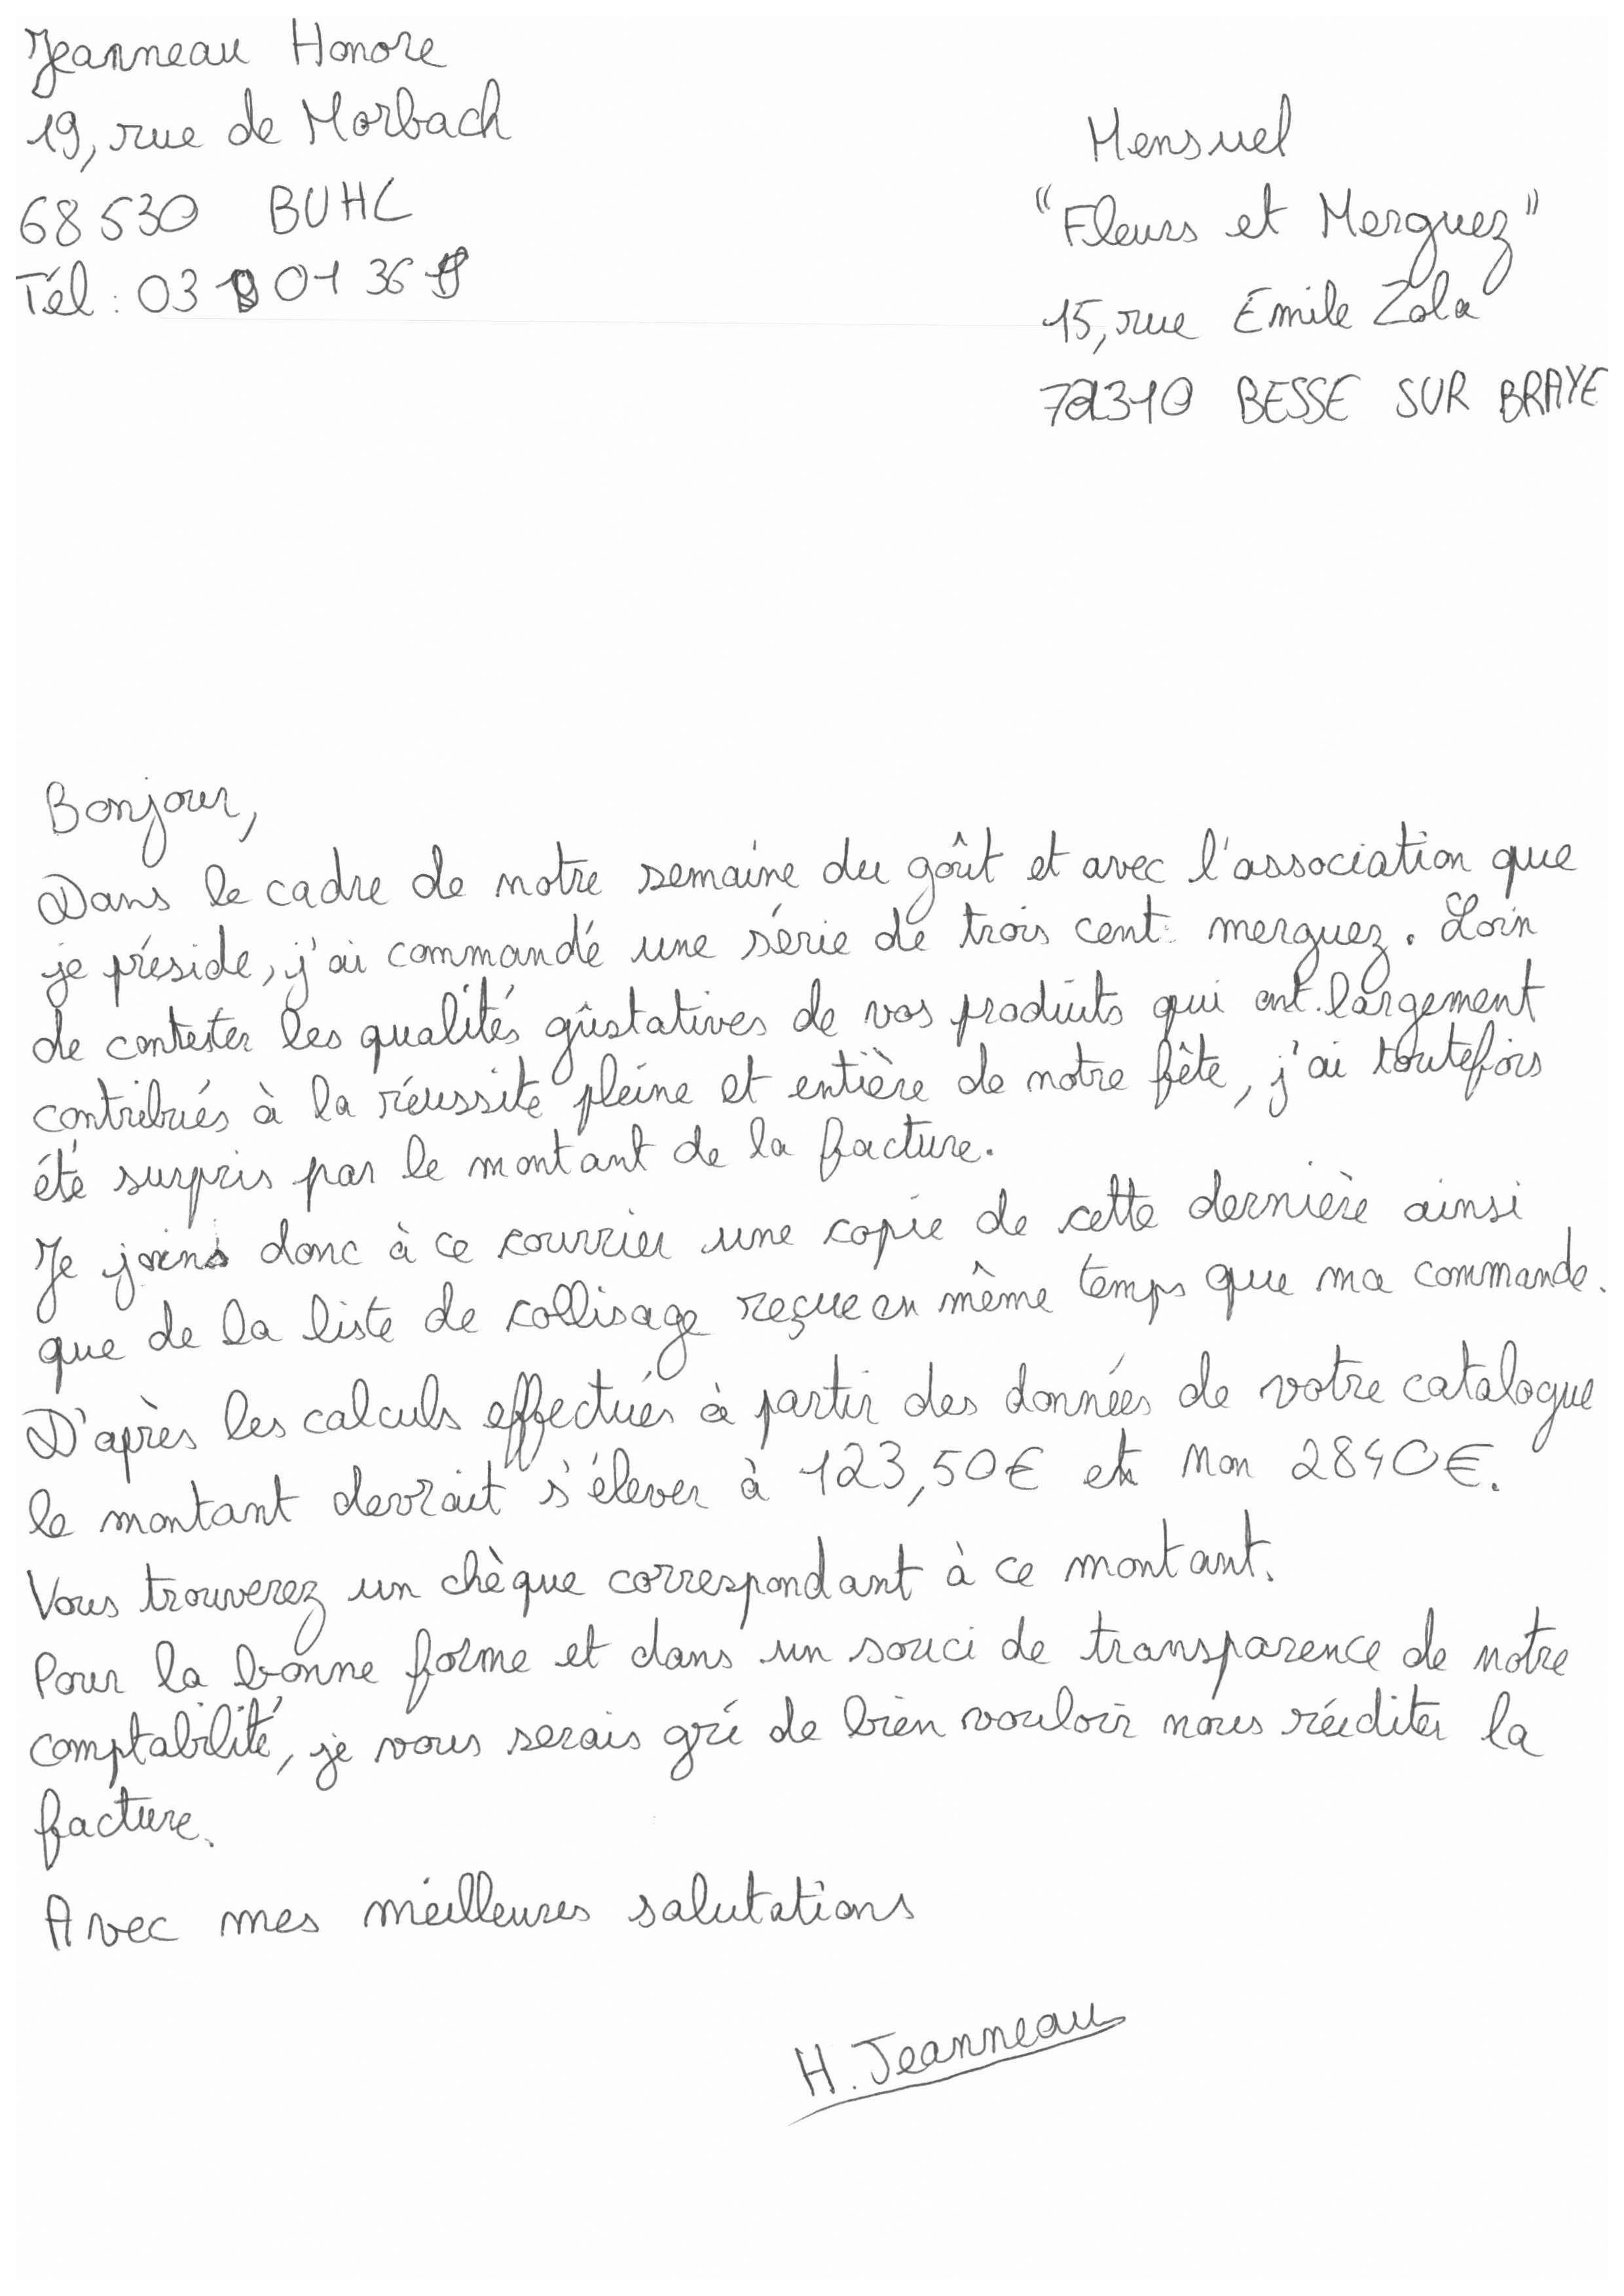 Jeanneau Honore
19, rue de Morbach
68530 BUHL
Tél : 03 01 36
Mensuel
"Fleurs et Merguez"
15, rue Emile Zola
72310 BESSE SUR BRAYE
Bonjour,
Dans le cadre de notre semaine du goût et avec l'association que
je préside, j'ai commandé une série de trois cent merguez. Loin
de contester les qualités gûstatives de vos produits qui ont largement
contribués à la réussite pleine et entière de notre fête, j'ai toutefois
été surpris par le montant de la facture.
Je joins donc à ce courrier une copie de cette dernière ainsi
que de la liste de collisage reçue en même temps que ma commande.
D'après les calculs effectués à partir des données de votre catalogue
le montant devrait s'élever à 123,50€ et non 2840€.
Vous trouverez un chèque correspondant à ce montant.
Pour la bonne forme et dans un souci de transparence de notre
comptabilité, je vous serais gré de bien vouloir nous rééditer la
facture.
Avec mes meilleures salutations
H. Jeanneau